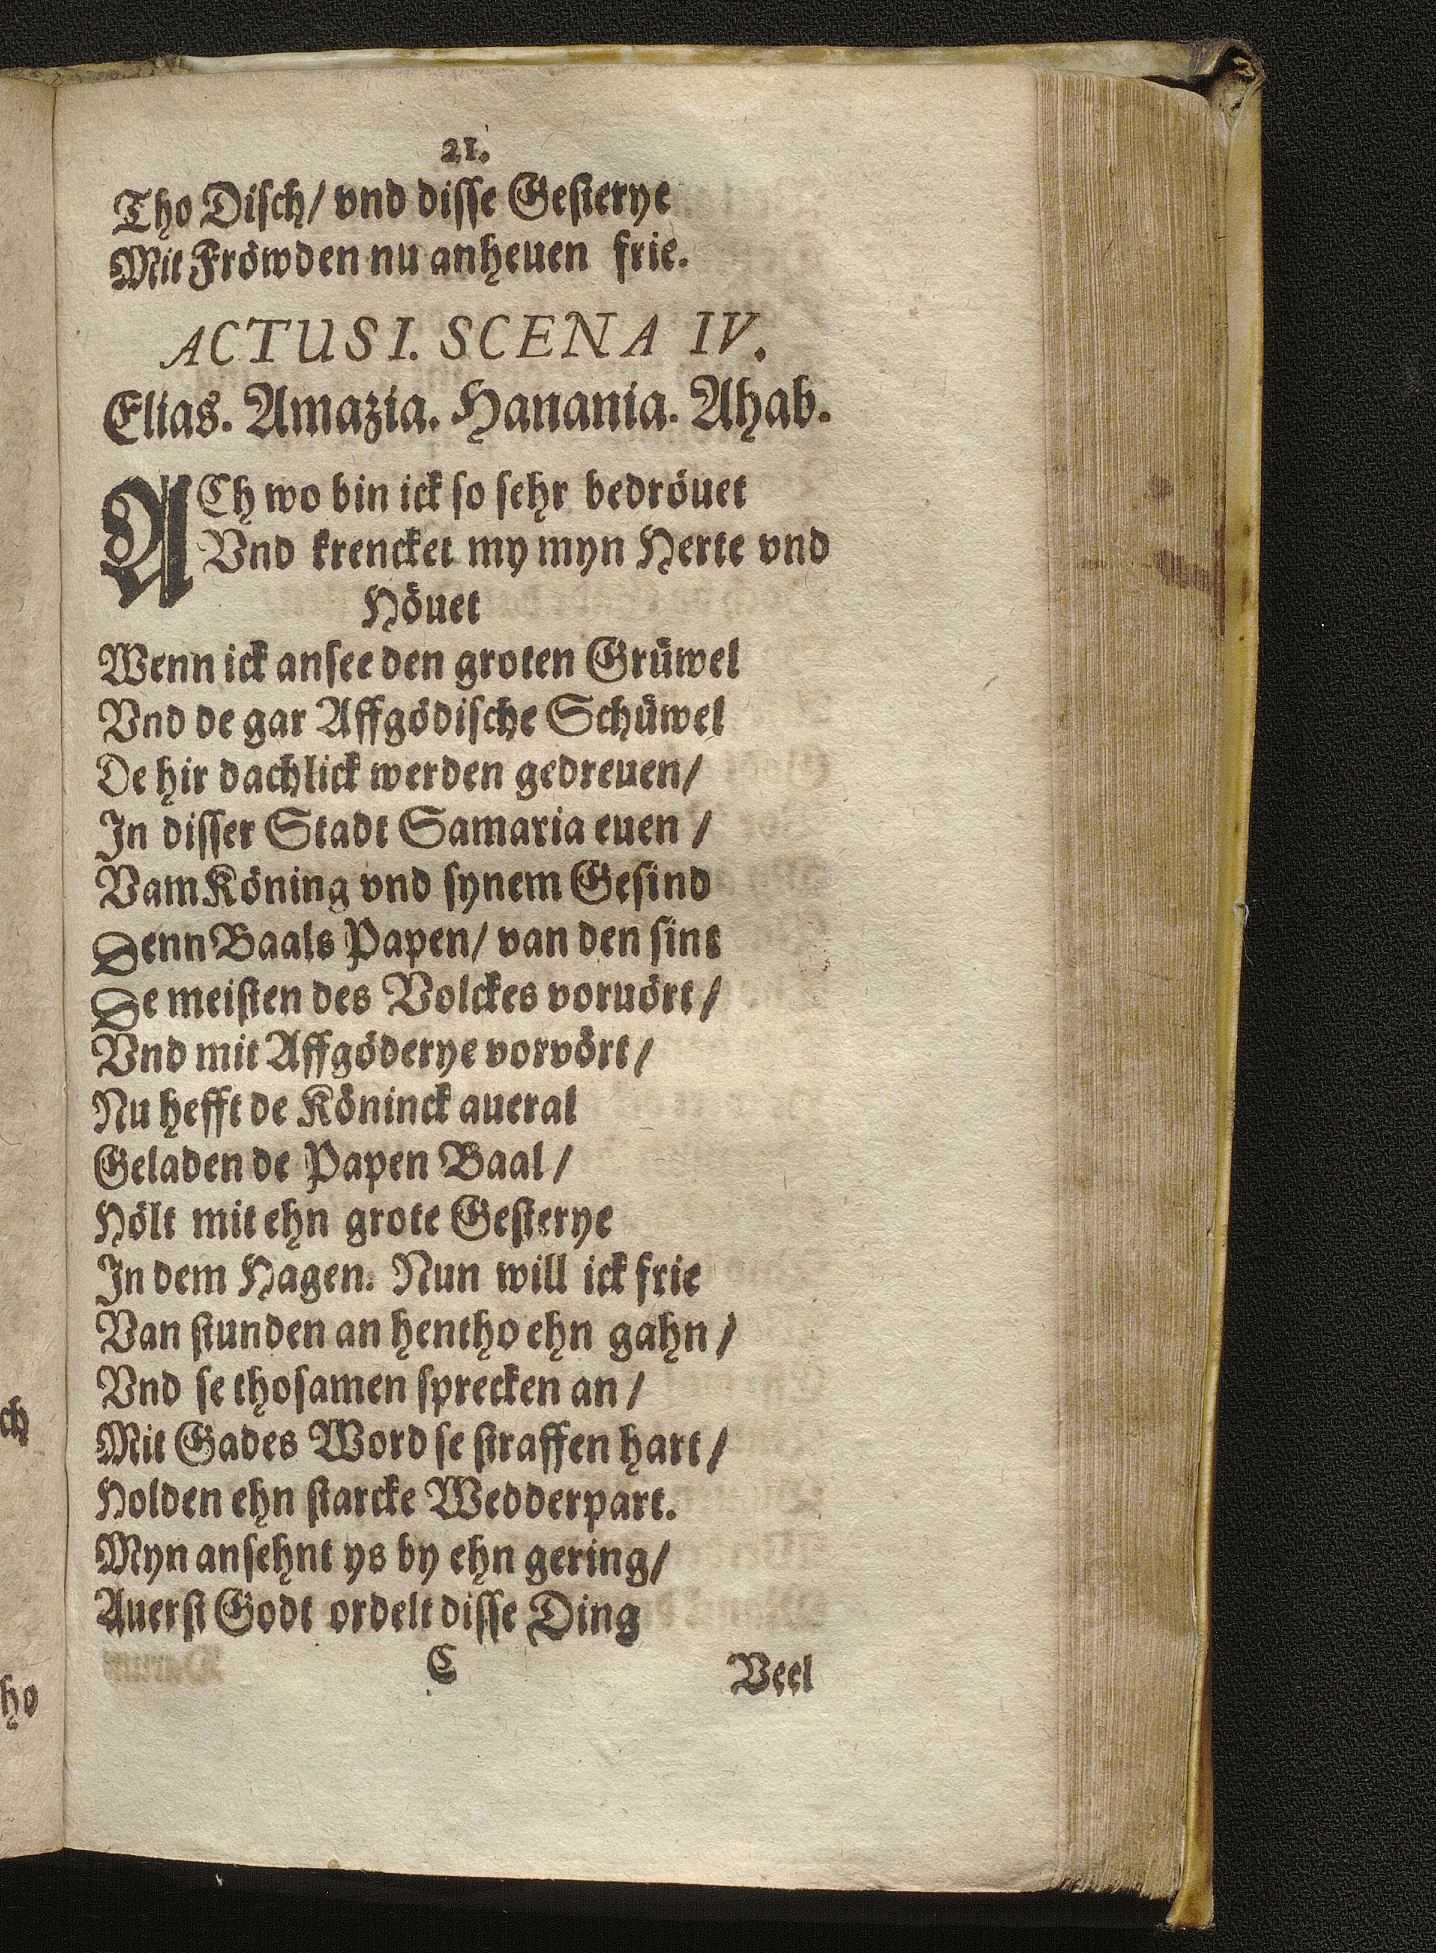 21.
Tho Disch/ vnd disse Gesterye
Mit Fröwden nu anheuen frie.
ACTUS I. SCENA IV.
Elias. Amazia. Hanania. Ahab.
ACh wo bin ick so sehr bedröuet
Vnd krencket my myn Herte vnd
Höuet
Wenn ick ansee den groten Grüwel
Vnd de gar Affgödische Schüwel
De hir dachlick werden gedreuen/
In disser Stadt Samaria euen /
Vam Köning vnd synem Gesind
Denn Baals Papen/ van den sint
De meisten des Volckes voruört/
Vnd mit Affgöderye vorvört/
Nu hefft de Köninck aueral
Geladen de Papen Baal/
Hölt mit ehn grote Gesterye
In dem Hagen. Nun will ick frie
Van stunden an hentho ehn gahn/
Vnd se thosamen sprecken an/
Mit Gades Word se straffen hart/
Holden ehn starcke Wedderpart.
Myn ansehnt ys by ehn gering/
Auerst Godt ordelt disse Ding
C
Veel
ch
ho